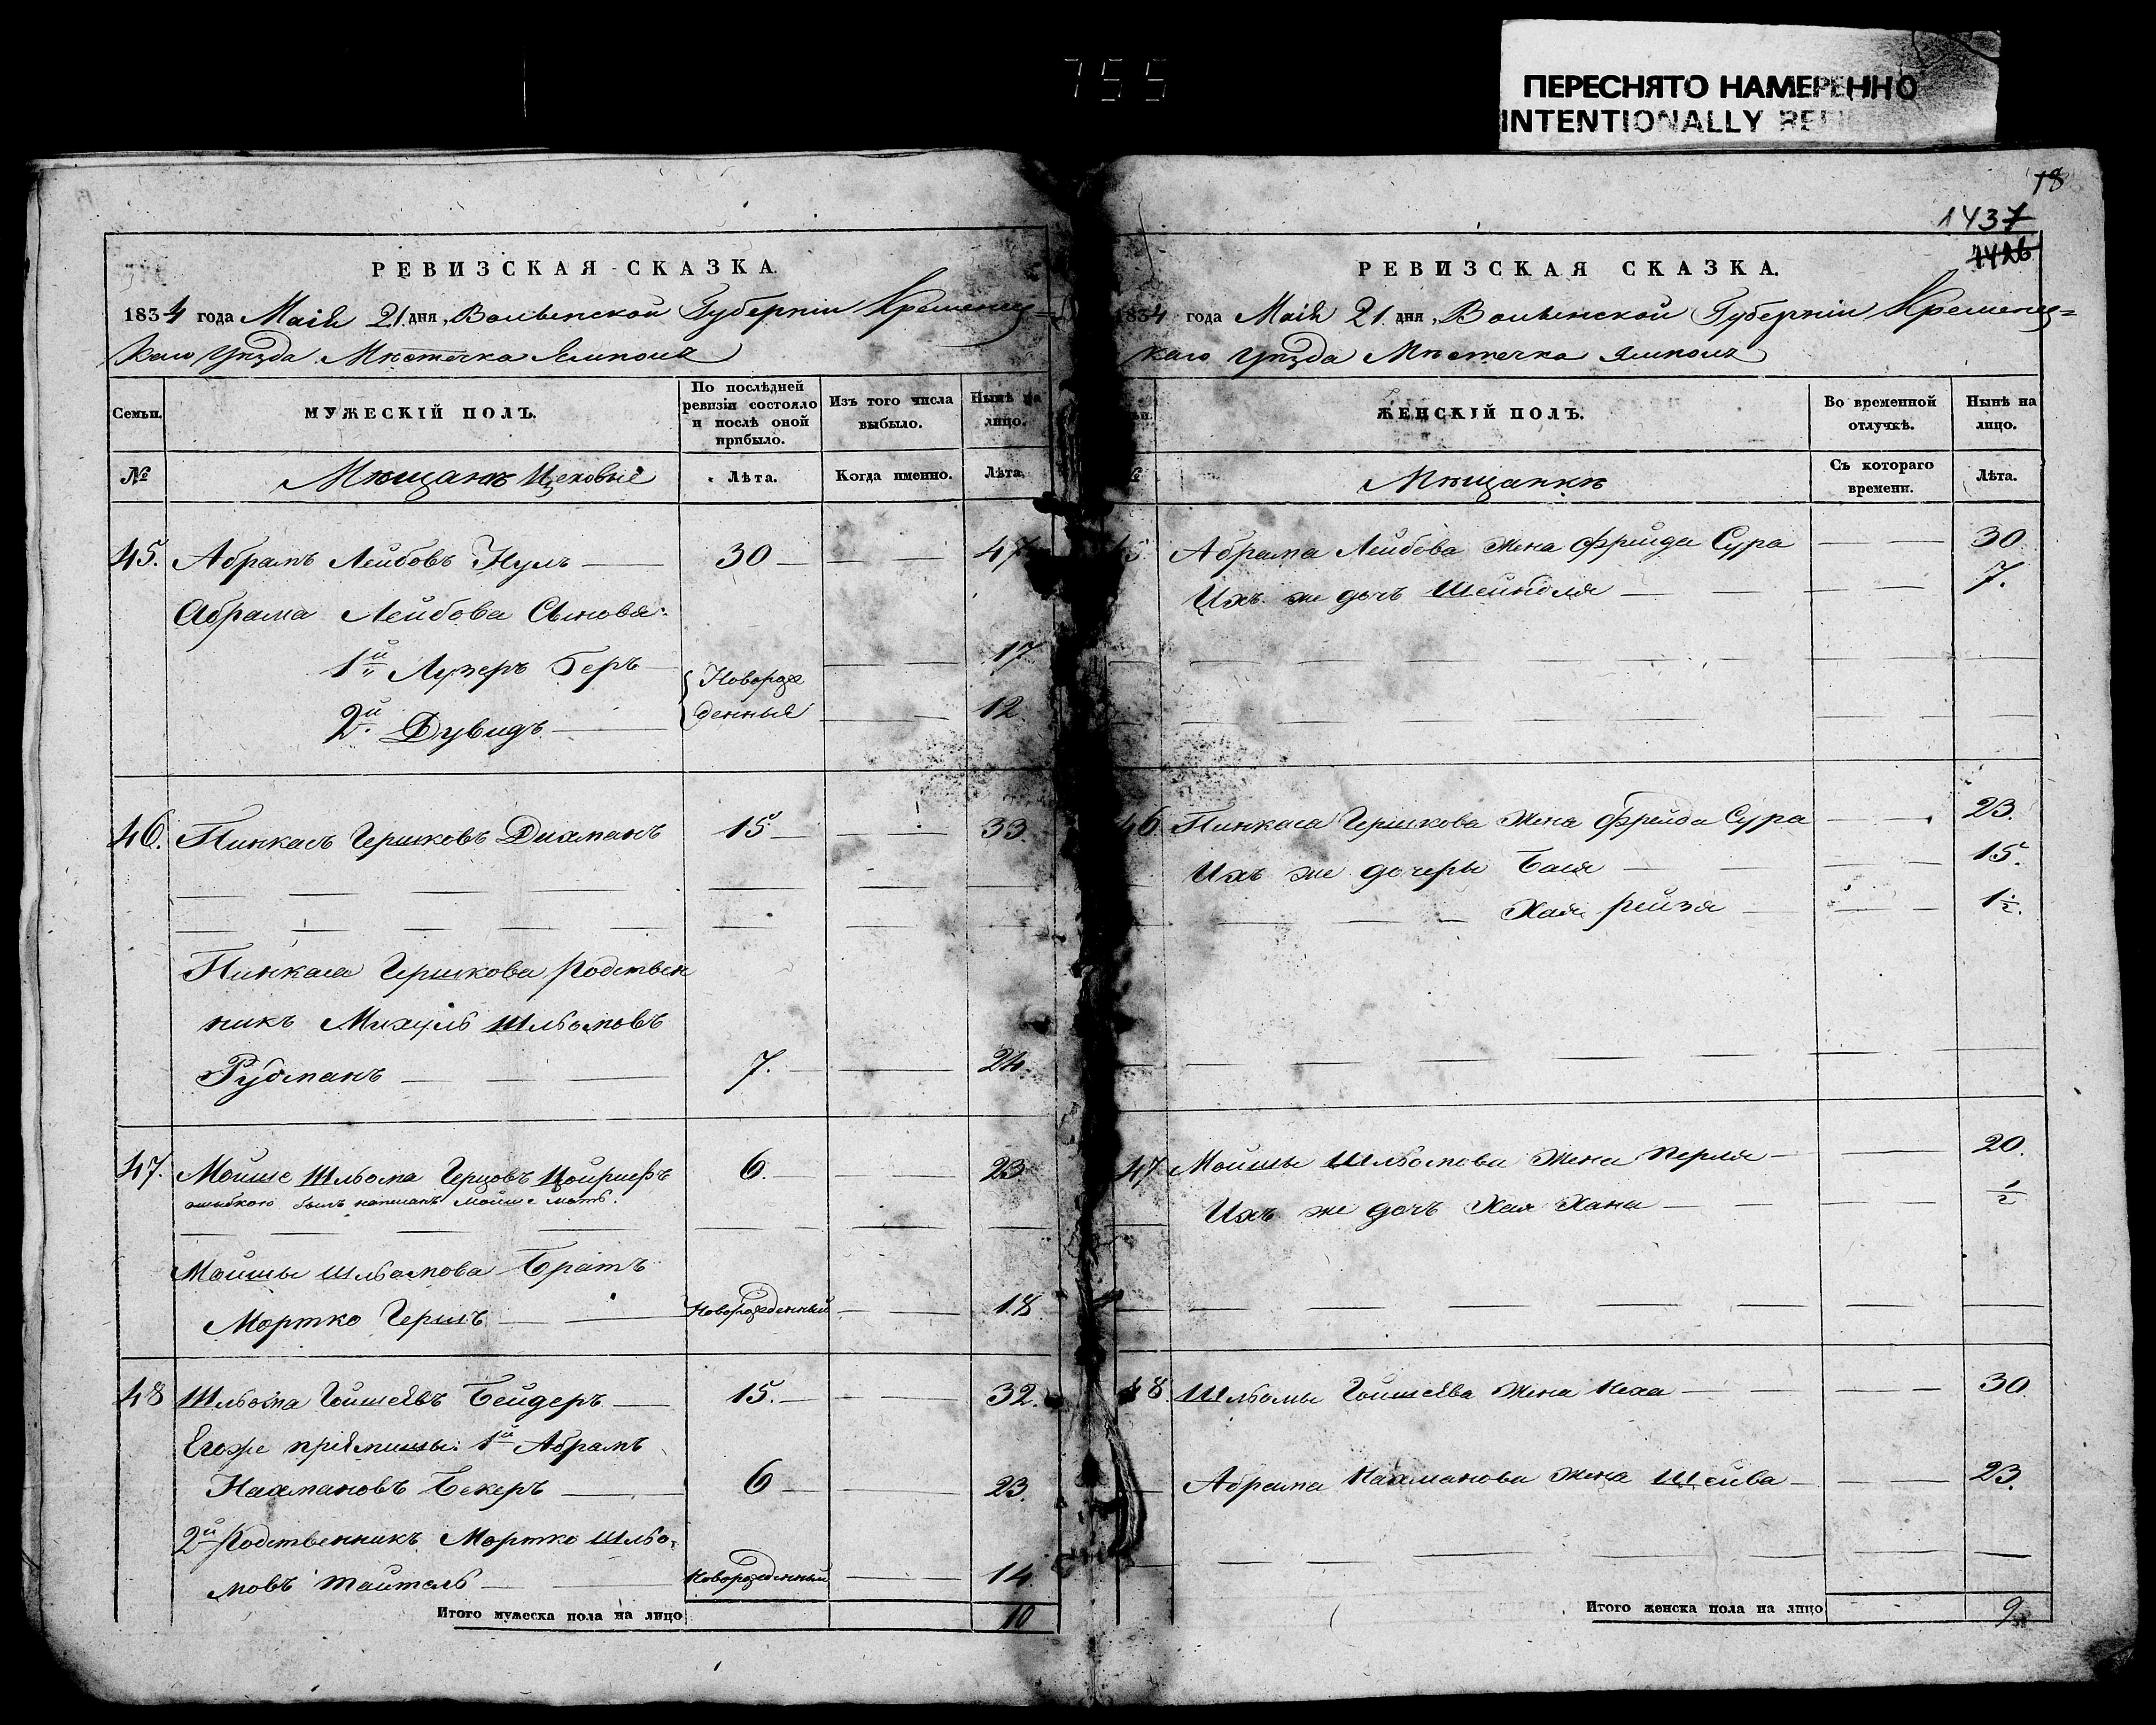 755
ПЕРЕСНЯТО НАМЕРЕННО
INTENTIONALLY
18
1437
1426
РЕВИЗСКАЯ СКАЗКА.
1834 года Маія 21 дня, Волынской Губерніи Кременец=
каго Уѣзда Мѣстечка Ямполя
Семьи.
МУЖЕСКІЙ ПОЛЪ.
По послѣдней ревизіи состояло и послѣ оной прибыло.
Изъ того числа выбыло.
Нынѣ на лицо.
№
Мѣщанъ Цеховые
Лѣта.
Когда именно.
Лѣта.
45. Абрамъ Лейбовъ Нуль — 30 — — — 47
Абрама Лейбова Сыновья:
1й Лузеръ Беръ — — 17
2й Дувидъ — Новорож
денныя — — 12.
46. Пинкасъ Гершковъ Дихманъ 15 — — — 33.
Пинкаса Гершкова родствен
никъ Михуль Шльомовъ
Рубманъ — — — 7. — — — 24.
47. Мойше Шльома Герцовъ 6. — — — 23
ошибкою былъ написанъ Мойше
Мойшы Шльомова Братъ
Мортко Гершъ — — Новорожденный — — 18
48 Шльома Гойшеввъ Бейдеръ — 15. — — — 32.
Егоже пріемышы: 1й Абрамъ
Нахмановъ Бекеръ — 6 — — — 23.
2й родственникъ Мортко Шльо-
мовъ Тайтель — Новорожденный — — 14
Итого мужеска пола на лицо 10
РЕВИЗСКАЯ СКАЗКА.
1834 года Маія 21 дня, Волынской Губерніи Кременец=
каго Уѣзда Мѣстечка Ямполя
ЖЕНСКІЙ ПОЛЪ.
Во временной отлучкѣ.
Нынѣ на лицо.
Мѣщанкѣ
Съ котораго времени.
Лѣта.
Абрама Лейбова жена Фрейда Сура — — — 30
Ихъ же дочь Шейнделя — — — 7.
46 Пинкаса Гершкова жена Фрейда Сура — — 23.
Ихъ же дочеры Бася — — — 15.
Хая Рейзя — — — 1½.
47 Мойшы Шльомова жена Перля — — — 20.
Ихъ же дочь Хая Хана — — ½
48. Шльомы Гойшевва жена Неха — — — 30
Абрама Нахманова жена Шейва — — — 23.
Итого женска пола на лицо 9